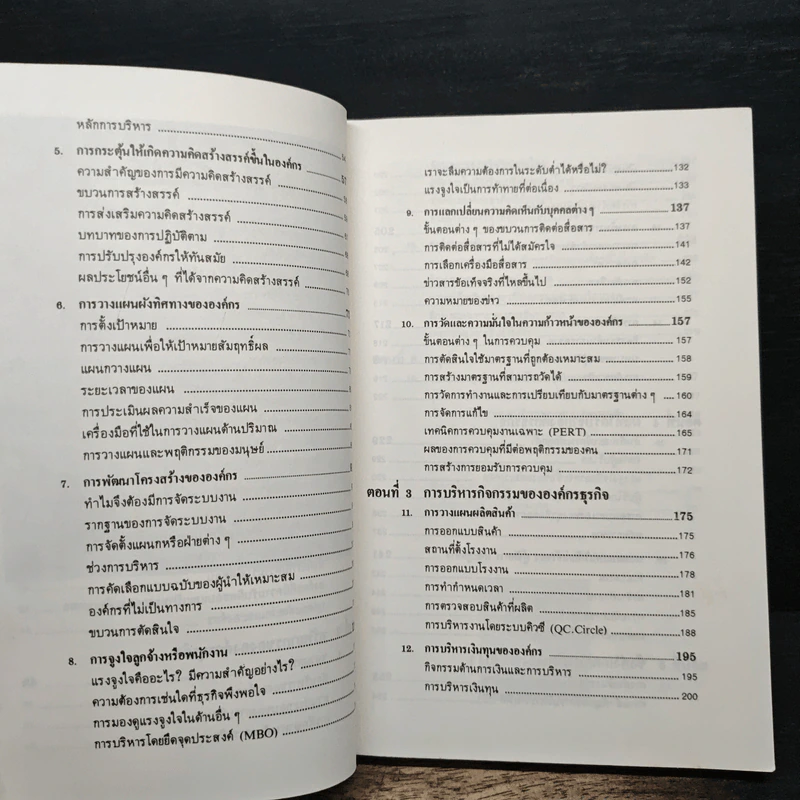 หลักการบริหาร
5. การกระตุ้นให้เกิดความคิดสร้างสรรค์ขึ้นในองค์กร
ความสำคัญของการมีความคิดสร้างสรรค์
ขบวนการสร้างสรรค์
การส่งเสริมความคิดสร้างสรรค์
บทบาทของการปฏิบัติตาม
การปรับปรุงองค์กรให้ทันสมัย
ผลประโยชน์อื่น ๆ ที่ได้จากความคิดสร้างสรรค์
6. การวางแผนผังทิศทางขององค์กร
การตั้งเป้าหมาย
การวางแผนเพื่อให้เป้าหมายสัมฤทธิ์ผล
แผนกวางแผน
ระยะเวลาของแผน
การประเมินผลความสำเร็จของแผน
เครื่องมือที่ใช้ในการวางแผนด้านปริมาณ
การวางแผนและพฤติกรรมของมนุษย์
7. การพัฒนาโครงสร้างขององค์กร
ทำไมจึงต้องมีการจัดระบบงาน
รากฐานของการจัดระบบงาน
การจัดตั้งแผนกหรือฝ่ายต่าง ๆ
ช่วงการบริหาร
การคัดเลือกแบบฉบับของผู้นำให้เหมาะสม
องค์กรที่ไม่เป็นทางการ
ขบวนการตัดสินใจ
8. การจูงใจลูกจ้างหรือพนักงาน
แรงจูงใจคืออะไร? มีความสำคัญอย่างไร?
ความต้องการเช่นใดที่ธุรกิจพึงพอใจ
การมองดูแรงจูงใจในด้านอื่น ๆ
การบริหารโดยยึดจุดประสงค์ (MBO)
เราจะลืมความต้องการในระดับต่ำได้หรือไม่? 132
แรงจูงใจเป็นการท้าทายที่ต่อเนื่อง 133
9. การแลกเปลี่ยนความคิดเห็นกับบุคคลต่าง ๆ 137
ขั้นตอนต่าง ๆ ของขบวนการติดต่อสื่อสาร 137
การติดต่อสื่อสารที่ไม่ได้สมัครใจ 141
การเลือกเครื่องมือสื่อสาร 142
ข่าวสารข้อเท็จจริงที่ไหลขึ้นไป 152
ความหมายของข่าว 155
10. การวัดและความมั่นใจในความก้าวหน้าขององค์กร 157
ขั้นตอนต่าง ๆ ในการควบคุม 157
การตัดสินใจใช้มาตรฐานที่ถูกต้องเหมาะสม 158
การสร้างมาตรฐานที่สามารถวัดได้ 159
การวัดการทำงานและการเปรียบเทียบกับมาตรฐานต่าง ๆ 160
การจัดการแก้ไข 164
เทคนิคการควบคุมงานเฉพาะ (PERT) 165
ผลของการควบคุมที่มีต่อพฤติกรรมของคน 171
การสร้างการยอมรับการควบคุม 172
ตอนที่ 3 การบริหารกิจกรรมขององค์กรธุรกิจ
11. การวางแผนผลิตสินค้า 175
การออกแบบสินค้า 175
สถานที่ตั้งโรงงาน 176
การออกแบบโรงงาน 178
การทำกำหนดเวลา 181
การตรวจสอบสินค้าที่ผลิต 185
การบริหารงานโดยระบบคิวซี (QC.Circle) 188
12. การบริหารเงินทุนขององค์กร 195
กิจกรรมด้านการเงินและการบริหาร 195
การบริหารเงินทุน 200